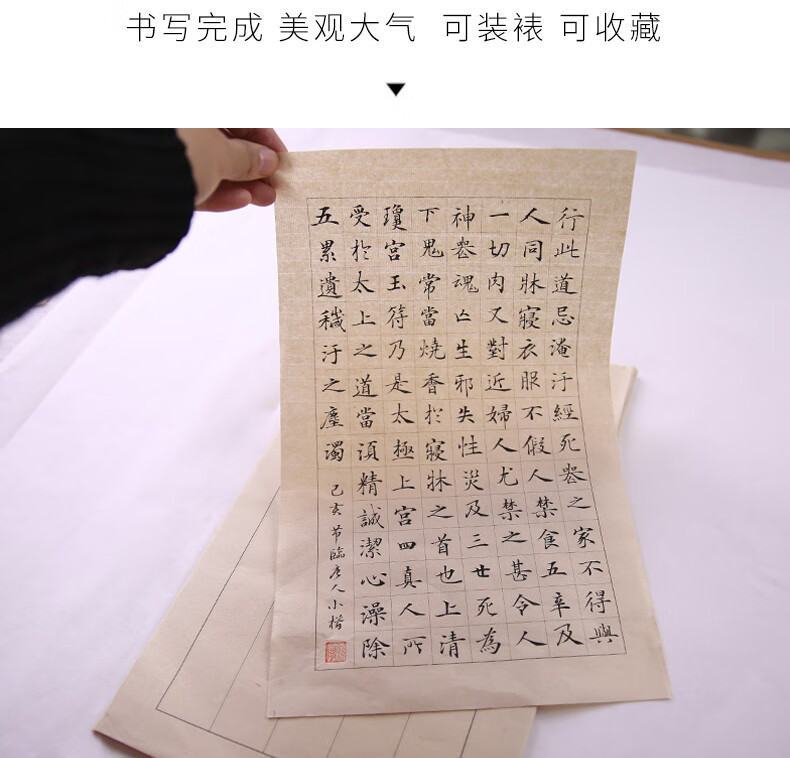 书写完成 美观大气 可装裱 可收藏
行此道忌淹汙經死喪之家不得與
人同牀寢衣服不假人禁食五辛及
一切肉又對近婦人尤禁之甚令人
神喪魂亡生邪失性災及三世死為
下鬼常當燒香於寢牀之首也上清
瓊宮玉符乃是太極上宮四真人所
受於太上之道當須精誠潔心澡除
五累遺穢汙之塵濁
己亥節臨唐人小楷